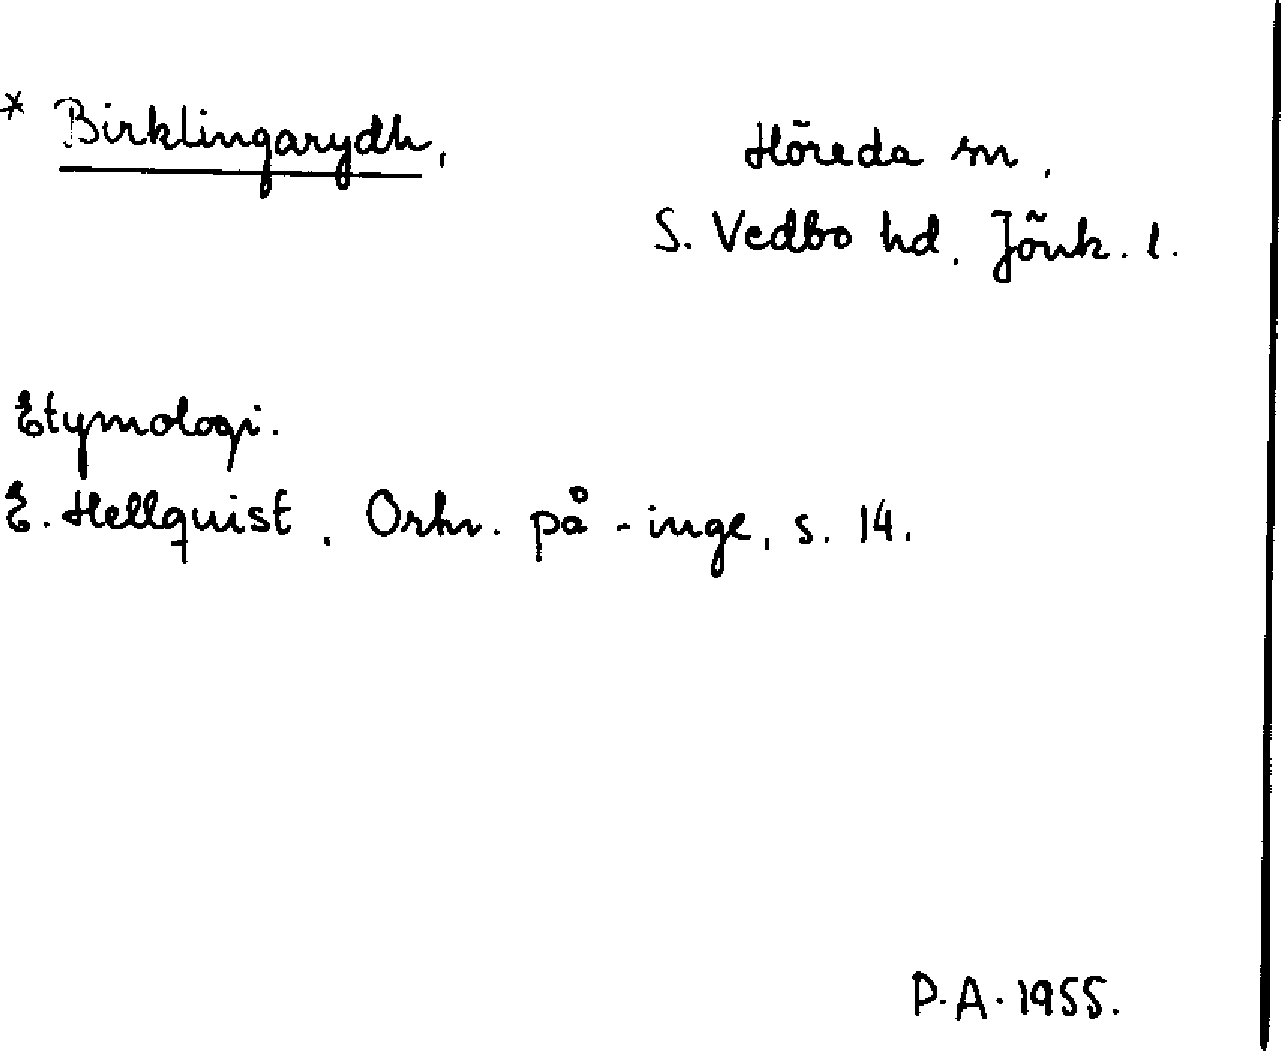 * Birklingarydh,
Höreda sn,
S. Vedbo hd, Jönk. l.
Etymologi.
E. Hellquist, Ortn. på -inge, s. 14.
P.A. 1955.